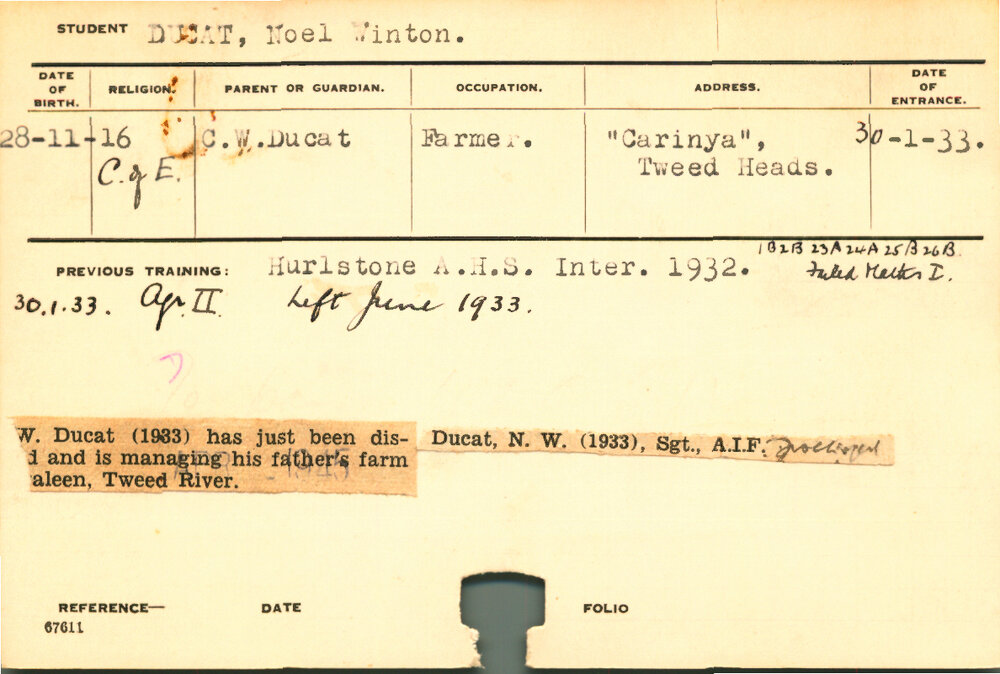 STUDENT DUCAT, Noel Winton.
DATE OF BIRTH. RELIGION. PARENT OR GUARDIAN. OCCUPATION. ADDRESS. DATE OF ENTRANCE.
28-11-16 C.W.Ducat Farmer. "Carinya", 30-1-33.
C. of E. Tweed Heads.
1B 2B 23A 24A 25B 26B
PREVIOUS TRAINING: Hurlstone A.H.S. Inter. 1932. Failed Maths I.
30.1.33. Agr. II. Left June 1933.
W. Ducat (1933) has just been dis-
d and is managing his father's farm
aleen, Tweed River.
Ducat, N. W. (1933), Sgt., A.I.F.
REFERENCE— DATE FOLIO
67611